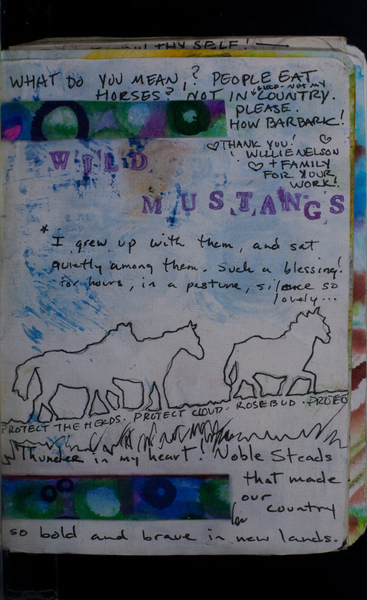 THY SELF!
WHAT DO YOU MEAN,? PEOPLE EAT
HORSES? NOT IN MY COUNTRY.
PLEASE.
HOW BARBARK!
THANK YOU!
WILLIE NELSON
+ FAMILY
FOR YOUR
WORK!
WILD
MUSTANGS
* I grew up with them, and sat
quietly among them. Such a blessing!
for hours, in a pasture, silence so
lovely...
PROTECT THE HERDS. PROTECT CLOUD. ROSEBUD.
Thunder in my heart! Noble Steads
that made
our
country
so bold and brave in new lands.